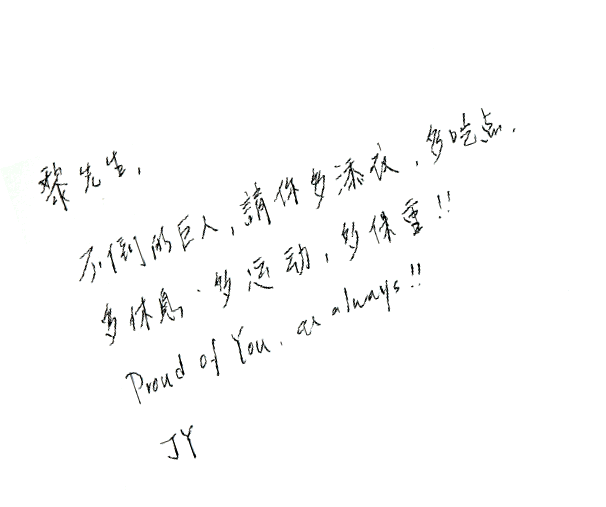 黎先生,
不倒的巨人,請你多添衣,多吃点,
多休息,多运动,多保重!!
Proud of You, as always!!
JY